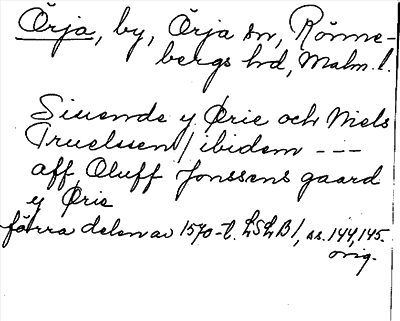 Örja, by, Örja sn, Rönne-
bergs hd, Malm. l.
Siuende y Ørie och Niels
Truelssen / ibidem ---
aff Oluff Jonssens gaard
y Ørie
förra delen av 1570-t. LSLB 1, ss. 144, 145.
orig.